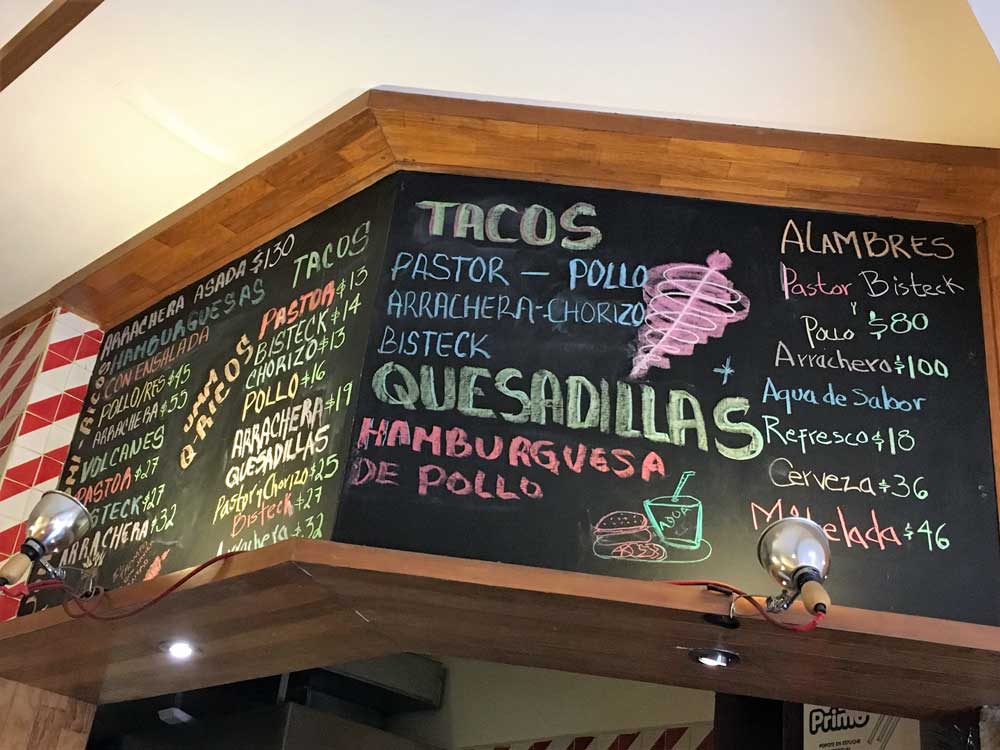 ARRACHERA ASADA $130
HAMBURGUESAS
CON ENSALADA
POLLO/RES $45
ARRACHERA $55
VOLCANES
PASTOR $27
$27
ARRACHERA $32
TACOS
PASTOR $13
BISTECK $14
CHORIZO $13
POLLO $16
ARRACHERA $19
QUESADILLAS
Pastor y Chorizo $25
Bisteck $27
$32
TACOS
PASTOR — POLLO
ARRACHERA-CHORIZO
BISTECK
QUESADILLAS
HAMBURGUESA
DE POLLO
AGUA
ALAMBRES
Pastor Bisteck
Y
Pollo $80
Arrachera $100
+
Agua de Sabor
Refresco $18
Cerveza $36
$46
Primo
POPOTE EN ESTUCHE